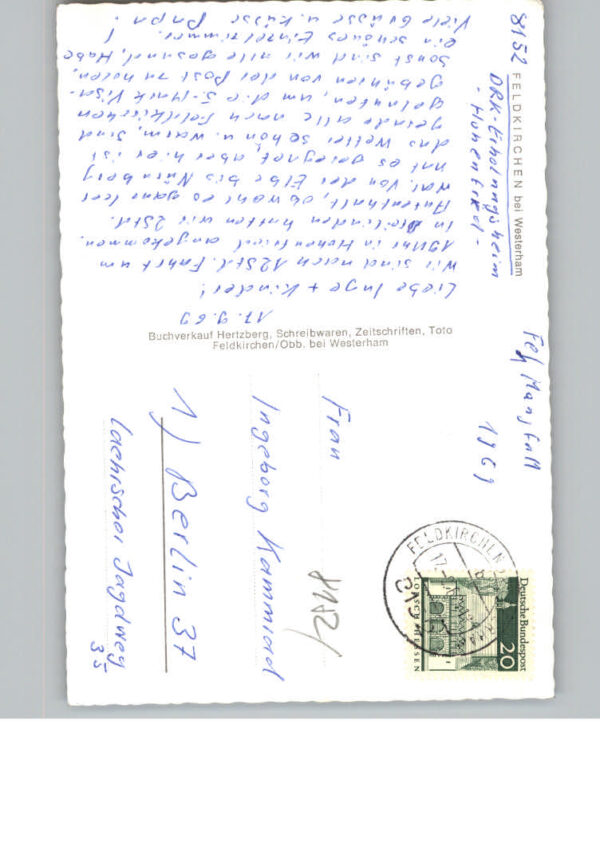 17.9.69
Liebe Inge + Kinder!
Wir sind nach 12 Std. Fahrt um
19 Uhr in Hohenfried angekommen.
In Dreilinden hatten wir 2 Std.
Aufenthalt, obwohl es ganz leer
war. Von der Elbe bis Nürnberg
hat es geregnet, aber hier ist
das Wetter schön u. warm. Sind
gerade alle nach Feldkirchen
gelaufen, um d. 5-Mark Visa-
gebühren von der Post zu holen.
Sonst sind wir alle gesund. Habe
ein schönes Einzelzimmer.
Viele Grüsse u. Küsse Papa
8152 FELDKIRCHEN bei Westerham
DRK-Erholungsheim
- Hohenfried -
Buchverkauf Hertzberg, Schreibwaren, Zeitschriften, Toto
Feldkirchen/Obb. bei Westerham
1969
Deutsche Bundespost
20
LORSCH HESSEN
FELDKIRCHEN
8152
Frau
Ingeborg Kammrad
1) Berlin 37
Jagdweg
35